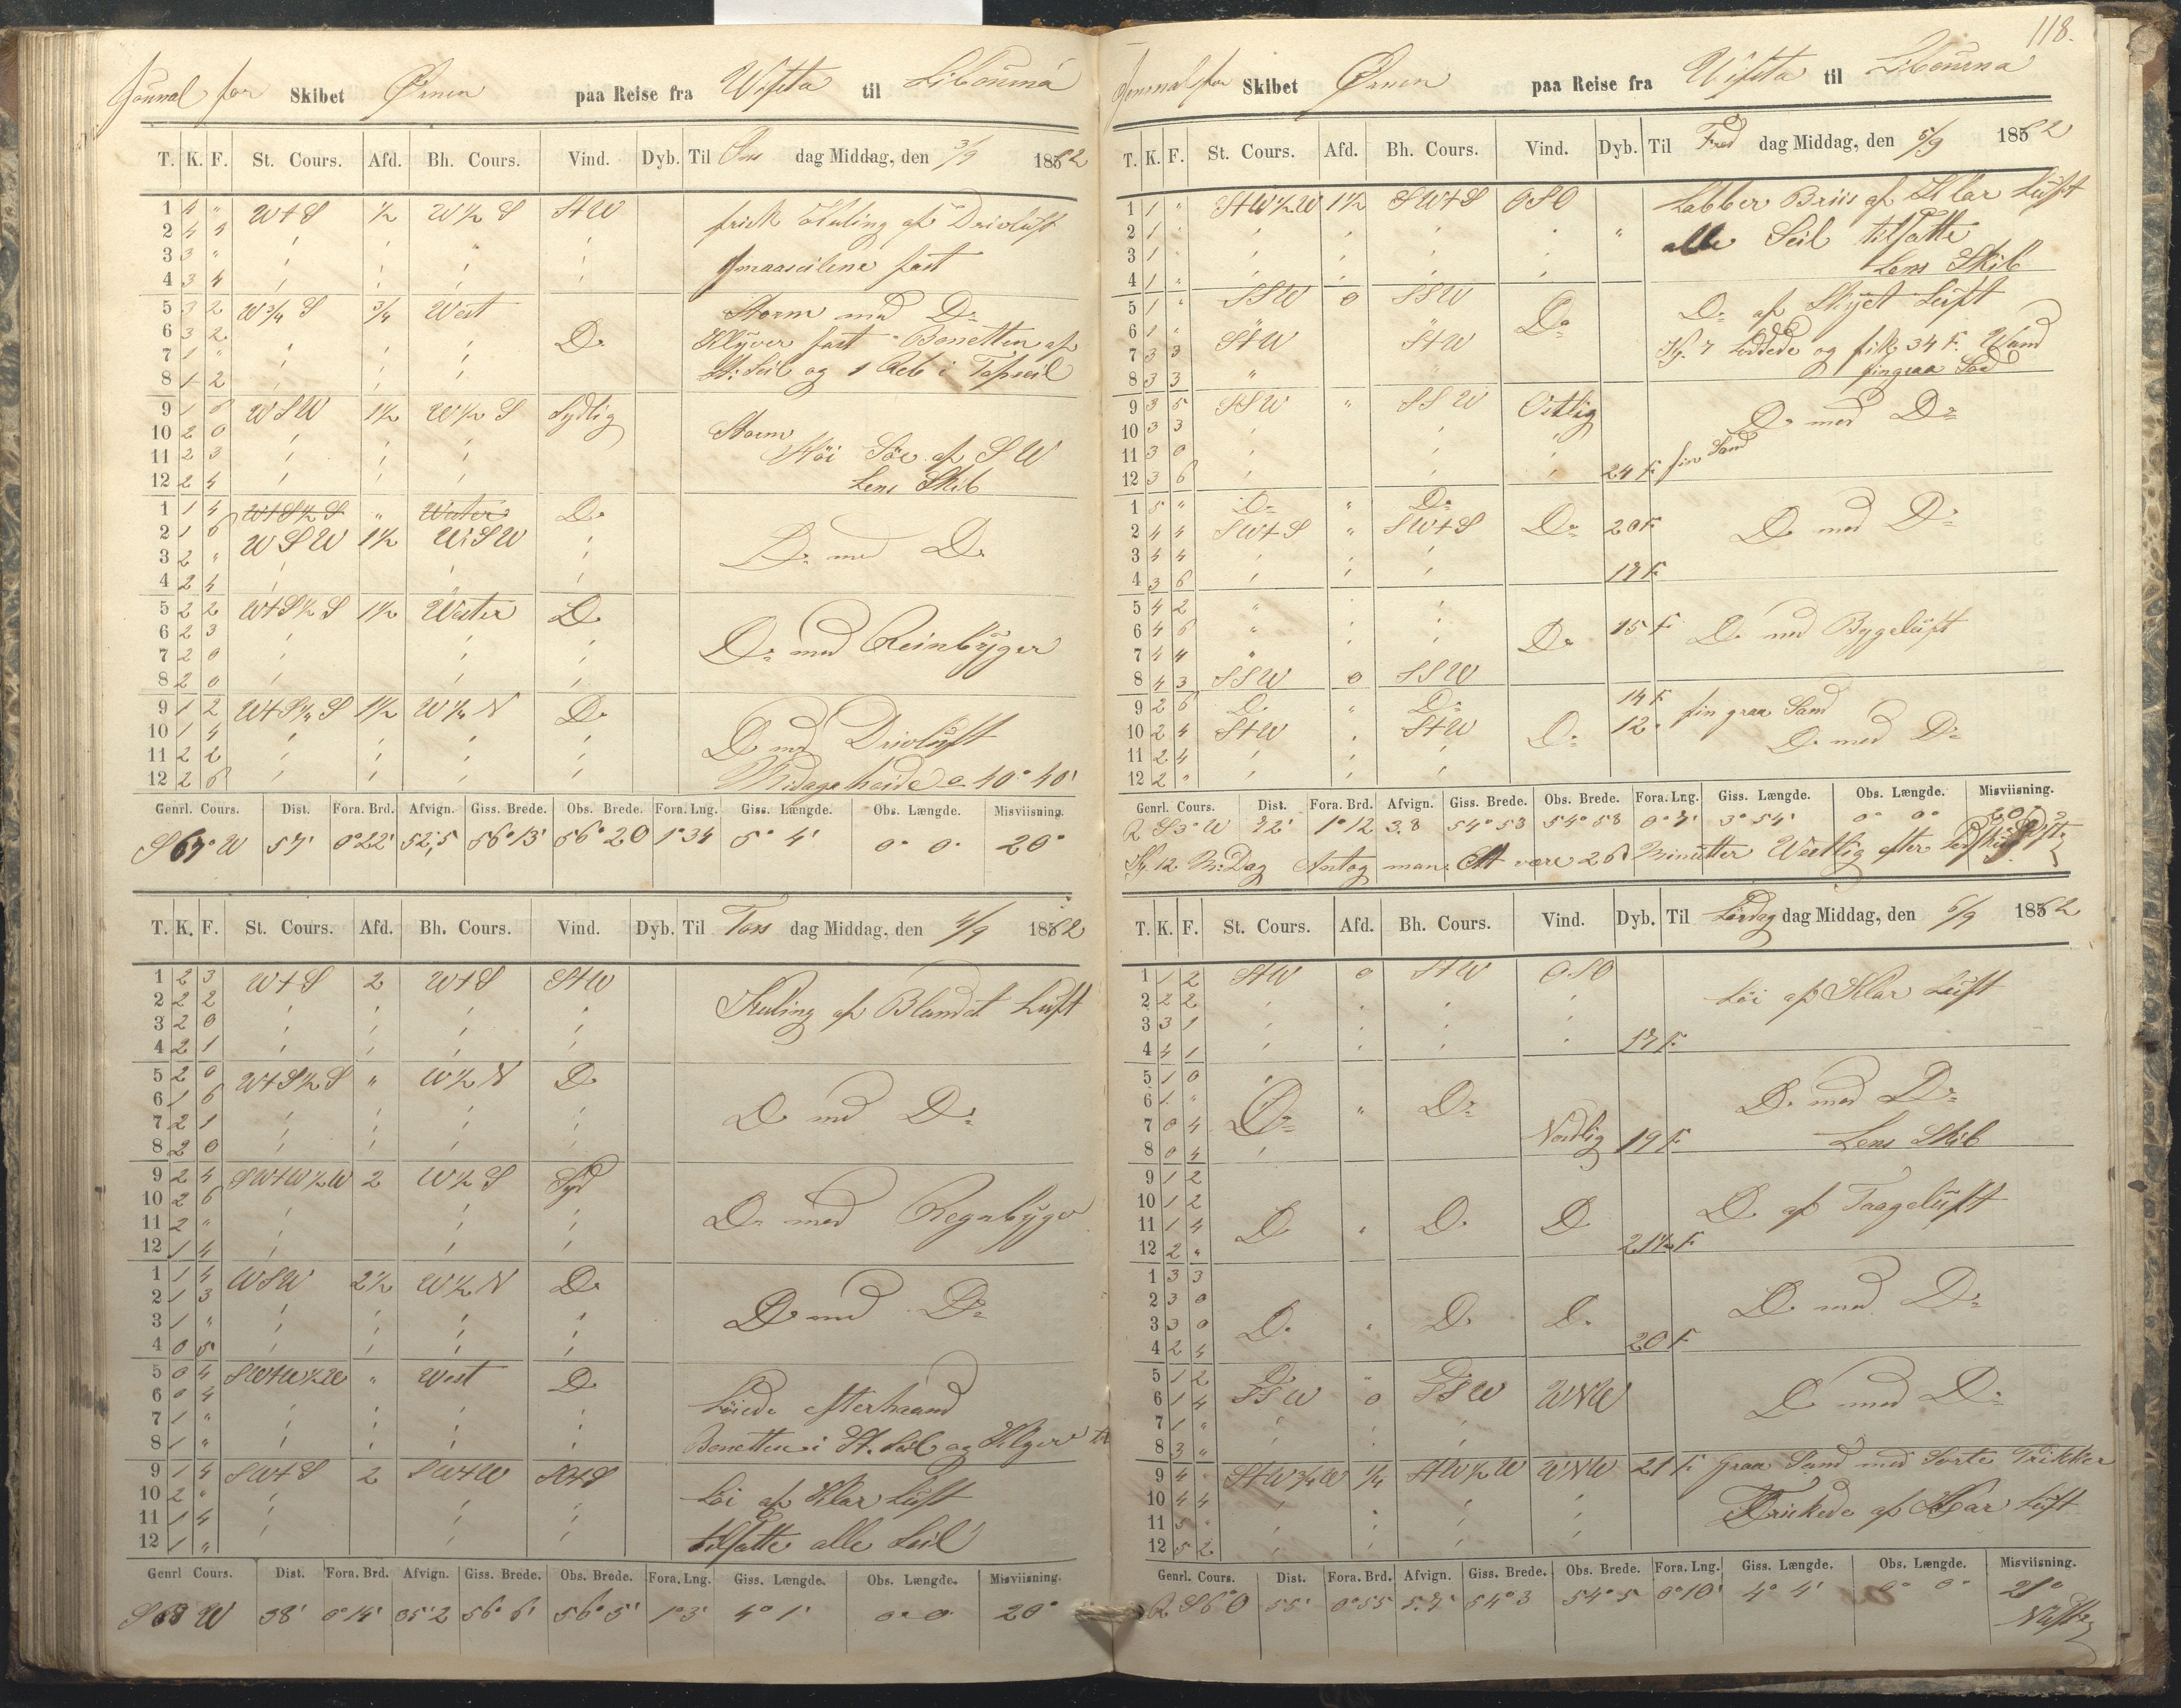 Journal for Skibet Ørnen paa Reise fra Wifsta til Libourna
T. K. F. St. Cours. Afd. Bh. Cours. Vind. Dyb. Til Ons dag Middag, den 3/9 1862
1 4 " W t S ½ W ½ S S t W frisk Kuling af Drivluft
2 4 4
3 3 " Smaaseilene fast
4 3 4
5 3 2 W ¾ S ¾ West Storm med Do
6 3 2 Do Klyver fast Bonetten af
7 1 " St. Seil og 1 Reb i Topseil
8 1 2
9 1 6 W S W 1½ W ½ S Sydlig
10 2 0 Storm
11 2 3 Höi Söe af S W
12 2 4 Lens Skib
1 1 4 W t S ½ S " Wester Do
2 1 6 W S W 1½ W S W
3 2 " Do med Do
4 2 4
5 2 2 W t S ½ S 1½ Wester Do
6 2 3 Do med Reinbyger
7 2 0
8 2 0
9 1 2 W t S ¼ S 1½ W ¼ N Do
10 1 4 Do med Drivluft
11 2 2
12 2 6 Midagsheide = 40° 40'
Genrl. Cours. Dist. Fora. Brd. Afvign. Giss. Brede. Obs. Brede. Fora. Lng. Giss. Længde. Obs. Længde. Misviisning.
S 67° W 57' 0° 22' 52,5 56° 13' 56° 20 1° 34 5° 4' 0° 0' 20°
T. K. F. St. Cours. Afd. Bh. Cours. Vind. Dyb. Til Tors dag Middag, den 4/9 1862
1 2 3 W t S 2 W t S S t W
2 2 2 Kuling af Blandet Luft
3 2 0
4 2 1
5 2 0 W t S ½ S " W ½ N Do
6 1 6 Do med Do
7 2 1
8 2 0
9 2 4 S W t W ½ W 2 W ½ S Syd
10 2 6 Do med Regnbyger
11 2 "
12 1 4
1 1 4 W S W 2½ W ½ N Do
2 1 3 Do med Do
3 1 "
4 0 5
5 0 4 S W t W ½ W " West Do
6 0 4 Löiede efterhaand
7 1 "
8 1 " Bonetten i St. Seil og Klyver til
9 1 4 S W t S 2 S W t W
10 2 " Löi af Klar Luft
11 1 4
12 1 " tilsatte alle Seil
Genrl Cours. Dist. Fora. Brd. Afvign. Giss. Brede. Obs. Brede. Fora. Lng. Giss. Længde. Obs. Længde. Misviisning.
S 68 W 38' 0° 14' 35' 2 56° 6' 56° 5' 1° 3' 4° 1' 0° 0' 20°
118.
Journal for Skibet Ørnen paa Reise fra Wifsta til Libourna
T. K. F. St. Cours. Afd. Bh. Cours. Vind. Dyb. Til Fred dag Middag, den 5/9 1862
1 1 " S t W ½ W 1½ S W t S O S O Labber Briis af Klar Luft
2 1 " alle Seil tilsatte
3 1 " Lens Skib
4 1 "
5 1 " S S W 0 S S W Do af Skyet Luft
6 1 " Do
7 3 3 S t W S t W Kl. 7 Loddede og fik 34 F. Wand
8 3 3 " fin graa Sand
9 3 5 S S W " S S W Ostlig Do med Do
10 3 3
11 3 0
12 3 6 24 F. fin Sand
1 5 " Do " Do
2 4 4 S W t S " S W t S Do 20 F. Do med Do
3 4 4
4 3 6 17 F.
5 4 2
6 4 6 15 F. Do med Bygeluft
7 4 4 Do
8 4 3 S S W 0 S S W
9 2 6 Do " Do 14 F. fin graa Sand
10 2 4 S t W S t W Do 12 " Do med Do
11 2 4
12 2 "
Genrl. Cours. Dist. Fora. Brd. Afvign. Giss. Brede. Obs. Brede. Fora. Lng. Giss. Længde. Obs. Længde. Misviisning.
R S 3° W 72' 1° 12 3.8 54° 53 54° 58 0° 7' 3° 54' 0° 0° 20½
Kl. 12 M. Dag Antog man. Ett være 26 Minutter Westlig efter
T. K. F. St. Cours. Afd. Bh. Cours. Vind. Dyb. Til Lördag dag Middag, den 6/9 1862
1 1 2 S t W 0 S t W O S O
2 2 2 Löi af Klar Luft
3 3 1
4 4 1 17 F.
5 1 0
6 1 " Do " Do Do med Do
7 0 4 Nordlig 19 F. Lens Skib
8 0 4
9 1 2
10 1 2 Do af Taageluft
11 1 4 Do " Do Do
12 2 " 21½ F.
1 3 3
2 3 0 Do med Do
3 3 0 Do " Do Do
4 2 4 20 F.
5 1 2 Do " Do
6 1 4 S S W 0 S S W W N W Do med Do
7 1 "
8 3 "
9 4 " S t W ¾ W ¼ S t W ½ W W N W 21 F. graa Sand med Sorte Prikker
10 4 4
11 5 " Friskede af Klar Luft
12 5 2
Genrl. Cours. Dist. Fora. Brd. Afvign. Giss. Brede. Obs. Brede. Fora. Lng. Giss. Længde. Obs. Længde. Misviisning.
R S 6° O 55' 0° 55 5.7' 54° 3 54° 5 0° 10' 4° 4' 0° 0° 21°